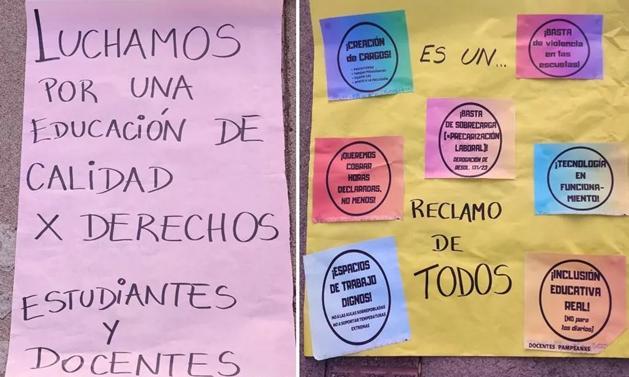 LUCHAMOS
POR UNA
EDUCACIÓN DE
CALIDAD
X DERECHOS
ESTUDIANTES
Y
DOCENTES
¡CREACIÓN
de CARGOS!
ES UN...
¡BASTA
de violencia
en las
escuelas!
¡BASTA
DE SOBRECARGA
(+PRECARIZACIÓN
LABORAL)!
DEROGACIÓN DE
RESOL. 131/23
¡QUEREMOS
COBRAR
HORAS
DECLARADAS,
NO MENOS!
¡TECNOLOGÍA
EN
FUNCIONA-
MIENTO!
RECLAMO
DE
TODOS
¡ESPACIOS
DE TRABAJO
DIGNOS!
NO A LAS AULAS SOBREPOBLADAS
NO A SOPORTAR TEMPERATURAS
EXTREMAS
¡INCLUSIÓN
EDUCATIVA
REAL!
(NO para
los diarios)
DOCENTES PAMPEANXS